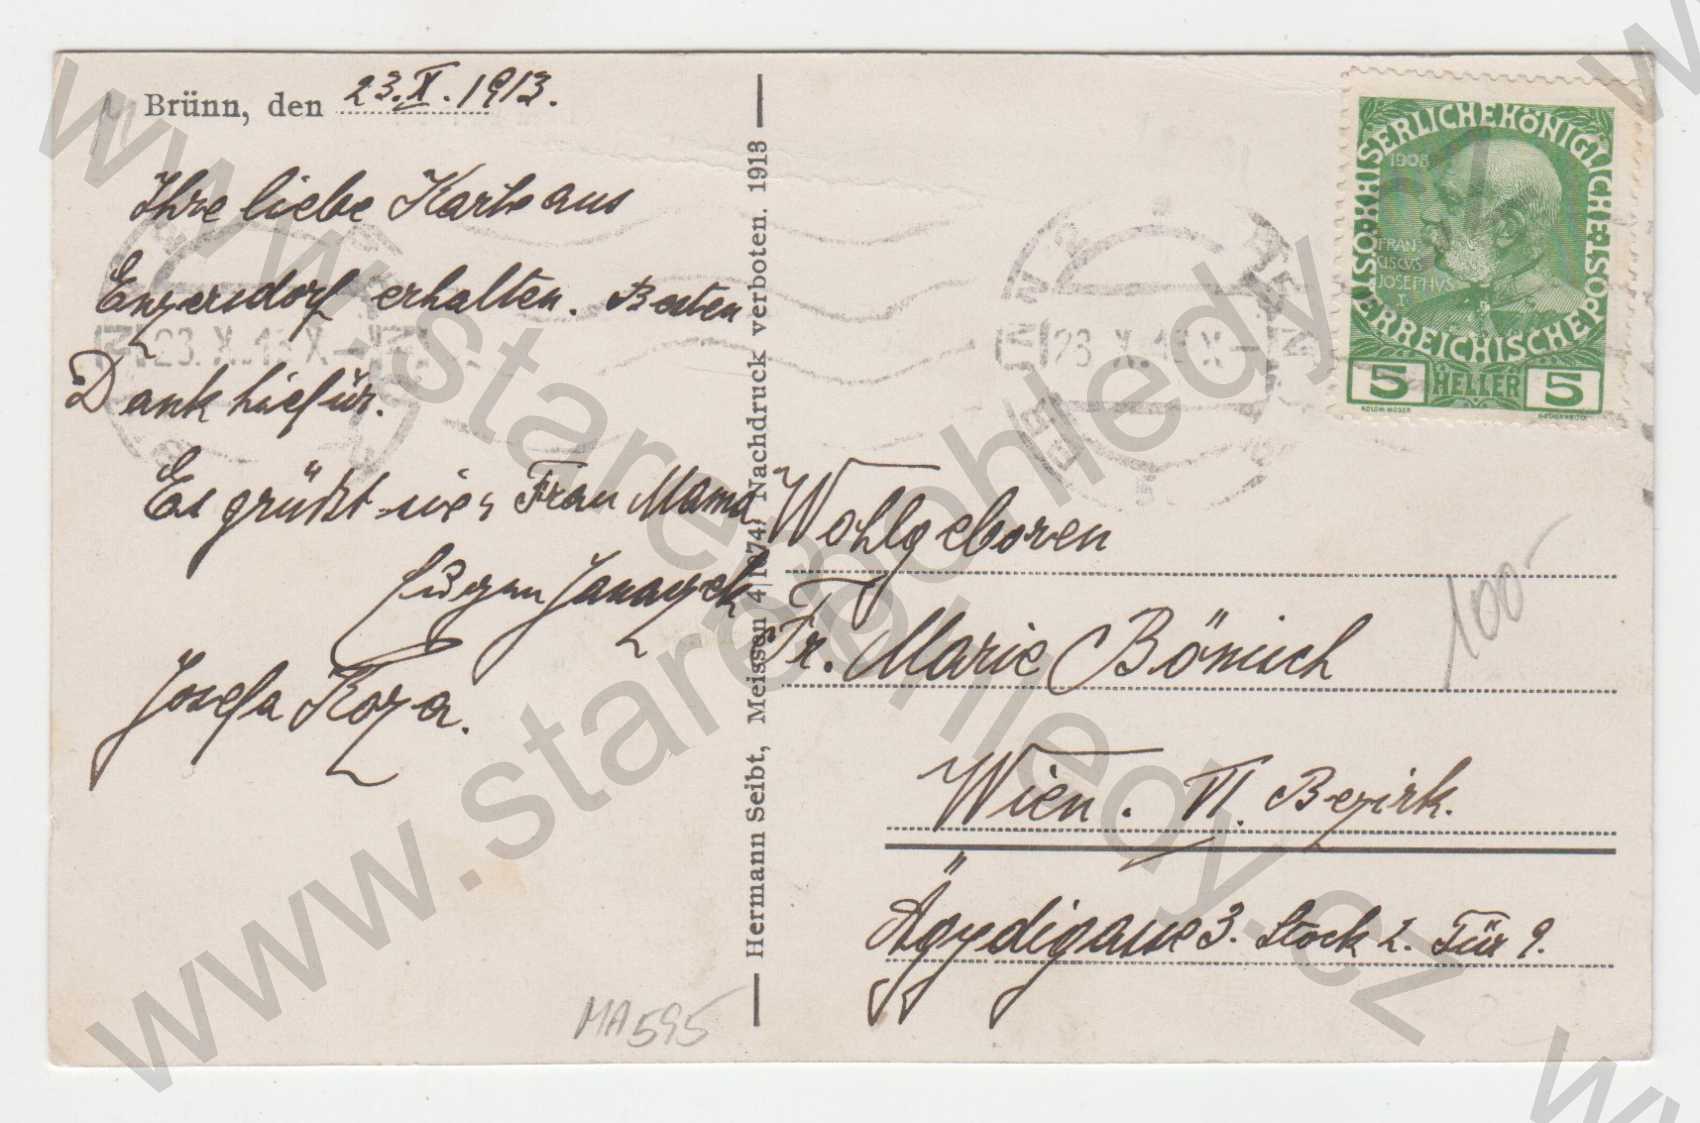 Brünn, den 23.X.1913.
Ihre liebe Karte aus
Enzersdorf erhalten. Besten
Dank hiefür.
Es grüßt sie, Frau Mama
Eugen
Josefa Koza.
Hermann Seibt, Meissen 4/1074/ Nachdruck verboten. 1913
KAISERLICHE KÖNIGLICHE
ÖSTERREICHISCHE POST
1908
FRAN
CISCVS
JOSEPHVS
I
5 HELLER 5
23. X. 13
BRÜNN
23. X. 13
Wohlgeboren
Fr. Marie Bömisch
Wien. VI. Bezirk.
Ägydigasse 3. Stock 2. Tür 9.
100-
MA595
www.starepohledy.cz
www.starepohledy.cz